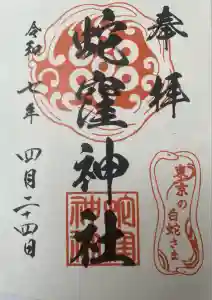 奉拝
蛇窪神社
令和七年
四月二十四日
東京の
白蛇さま
蛇窪
神社